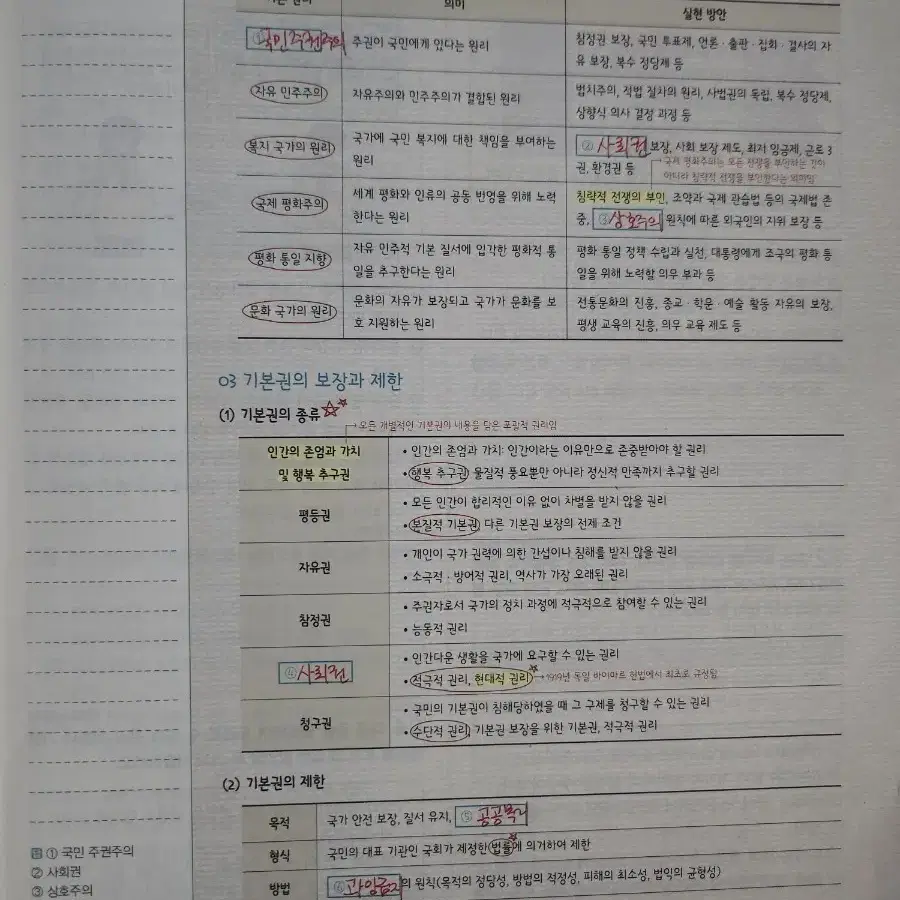 의미
실현 방안
① 국민주권주의
주권이 국민에게 있다는 원리
참정권 보장, 국민 투표제, 언론·출판·집회·결사의 자
유 보장, 복수 정당제 등
자유 민주주의
자유주의와 민주주의가 결합된 원리
법치주의, 적법 절차의 원리, 사법권의 독립, 복수 정당제,
상향식 의사 결정 과정 등
복지 국가의 원리
국가에 국민 복지에 대한 책임을 부여하는
원리
② 사회권 보장, 사회 보장 제도, 최저 임금제, 근로 3
권, 환경권 등
국제 평화주의는 모든 전쟁을 부인하는 것이
아니라 침략적 전쟁을 부인한다는 의미임
국제 평화주의
세계 평화와 인류의 공동 번영을 위해 노력
한다는 원리
침략적 전쟁의 부인, 조약과 국제 관습법 등의 국제법 존
중, ③ 상호주의 원칙에 따른 외국인의 지위 보장 등
평화 통일 지향
자유 민주적 기본 질서에 입각한 평화적 통
일을 추구한다는 원리
평화 통일 정책 수립과 실천, 대통령에게 조국의 평화 통
일을 위해 노력할 의무 부과 등
문화 국가의 원리
문화의 자유가 보장되고 국가가 문화를 보
호 지원하는 원리
전통문화의 진흥, 종교·학문·예술 활동 자유의 보장,
평생 교육의 진흥, 의무 교육 제도 등
03 기본권의 보장과 제한
(1) 기본권의 종류
모든 개별적인 기본권의 내용을 담은 포괄적 권리임
인간의 존엄과 가치
및 행복 추구권
• 인간의 존엄과 가치: 인간이라는 이유만으로 존중받아야 할 권리
• 행복 추구권: 물질적 풍요뿐만 아니라 정신적 만족까지 추구할 권리
평등권
• 모든 인간이 합리적인 이유 없이 차별을 받지 않을 권리
• 본질적 기본권, 다른 기본권 보장의 전제 조건
자유권
• 개인이 국가 권력에 의한 간섭이나 침해를 받지 않을 권리
• 소극적·방어적 권리, 역사가 가장 오래된 권리
참정권
• 주권자로서 국가의 정치 과정에 적극적으로 참여할 수 있는 권리
• 능동적 권리
④ 사회권
• 인간다운 생활을 국가에 요구할 수 있는 권리
• 적극적 권리, 현대적 권리 → 1919년 독일 바이마르 헌법에서 최초로 규정됨
청구권
• 국민의 기본권이 침해당하였을 때 그 구제를 청구할 수 있는 권리
• 수단적 권리, 기본권 보장을 위한 기본권, 적극적 권리
(2) 기본권의 제한
목적
국가 안전 보장, 질서 유지, ⑤ 공공복리
형식
국민의 대표 기관인 국회가 제정한 법률에 의거하여 제한
방법
⑥ 과잉금지의 원칙(목적의 정당성, 방법의 적정성, 피해의 최소성, 법익의 균형성)
답 ① 국민 주권주의
② 사회권
③ 상호주의